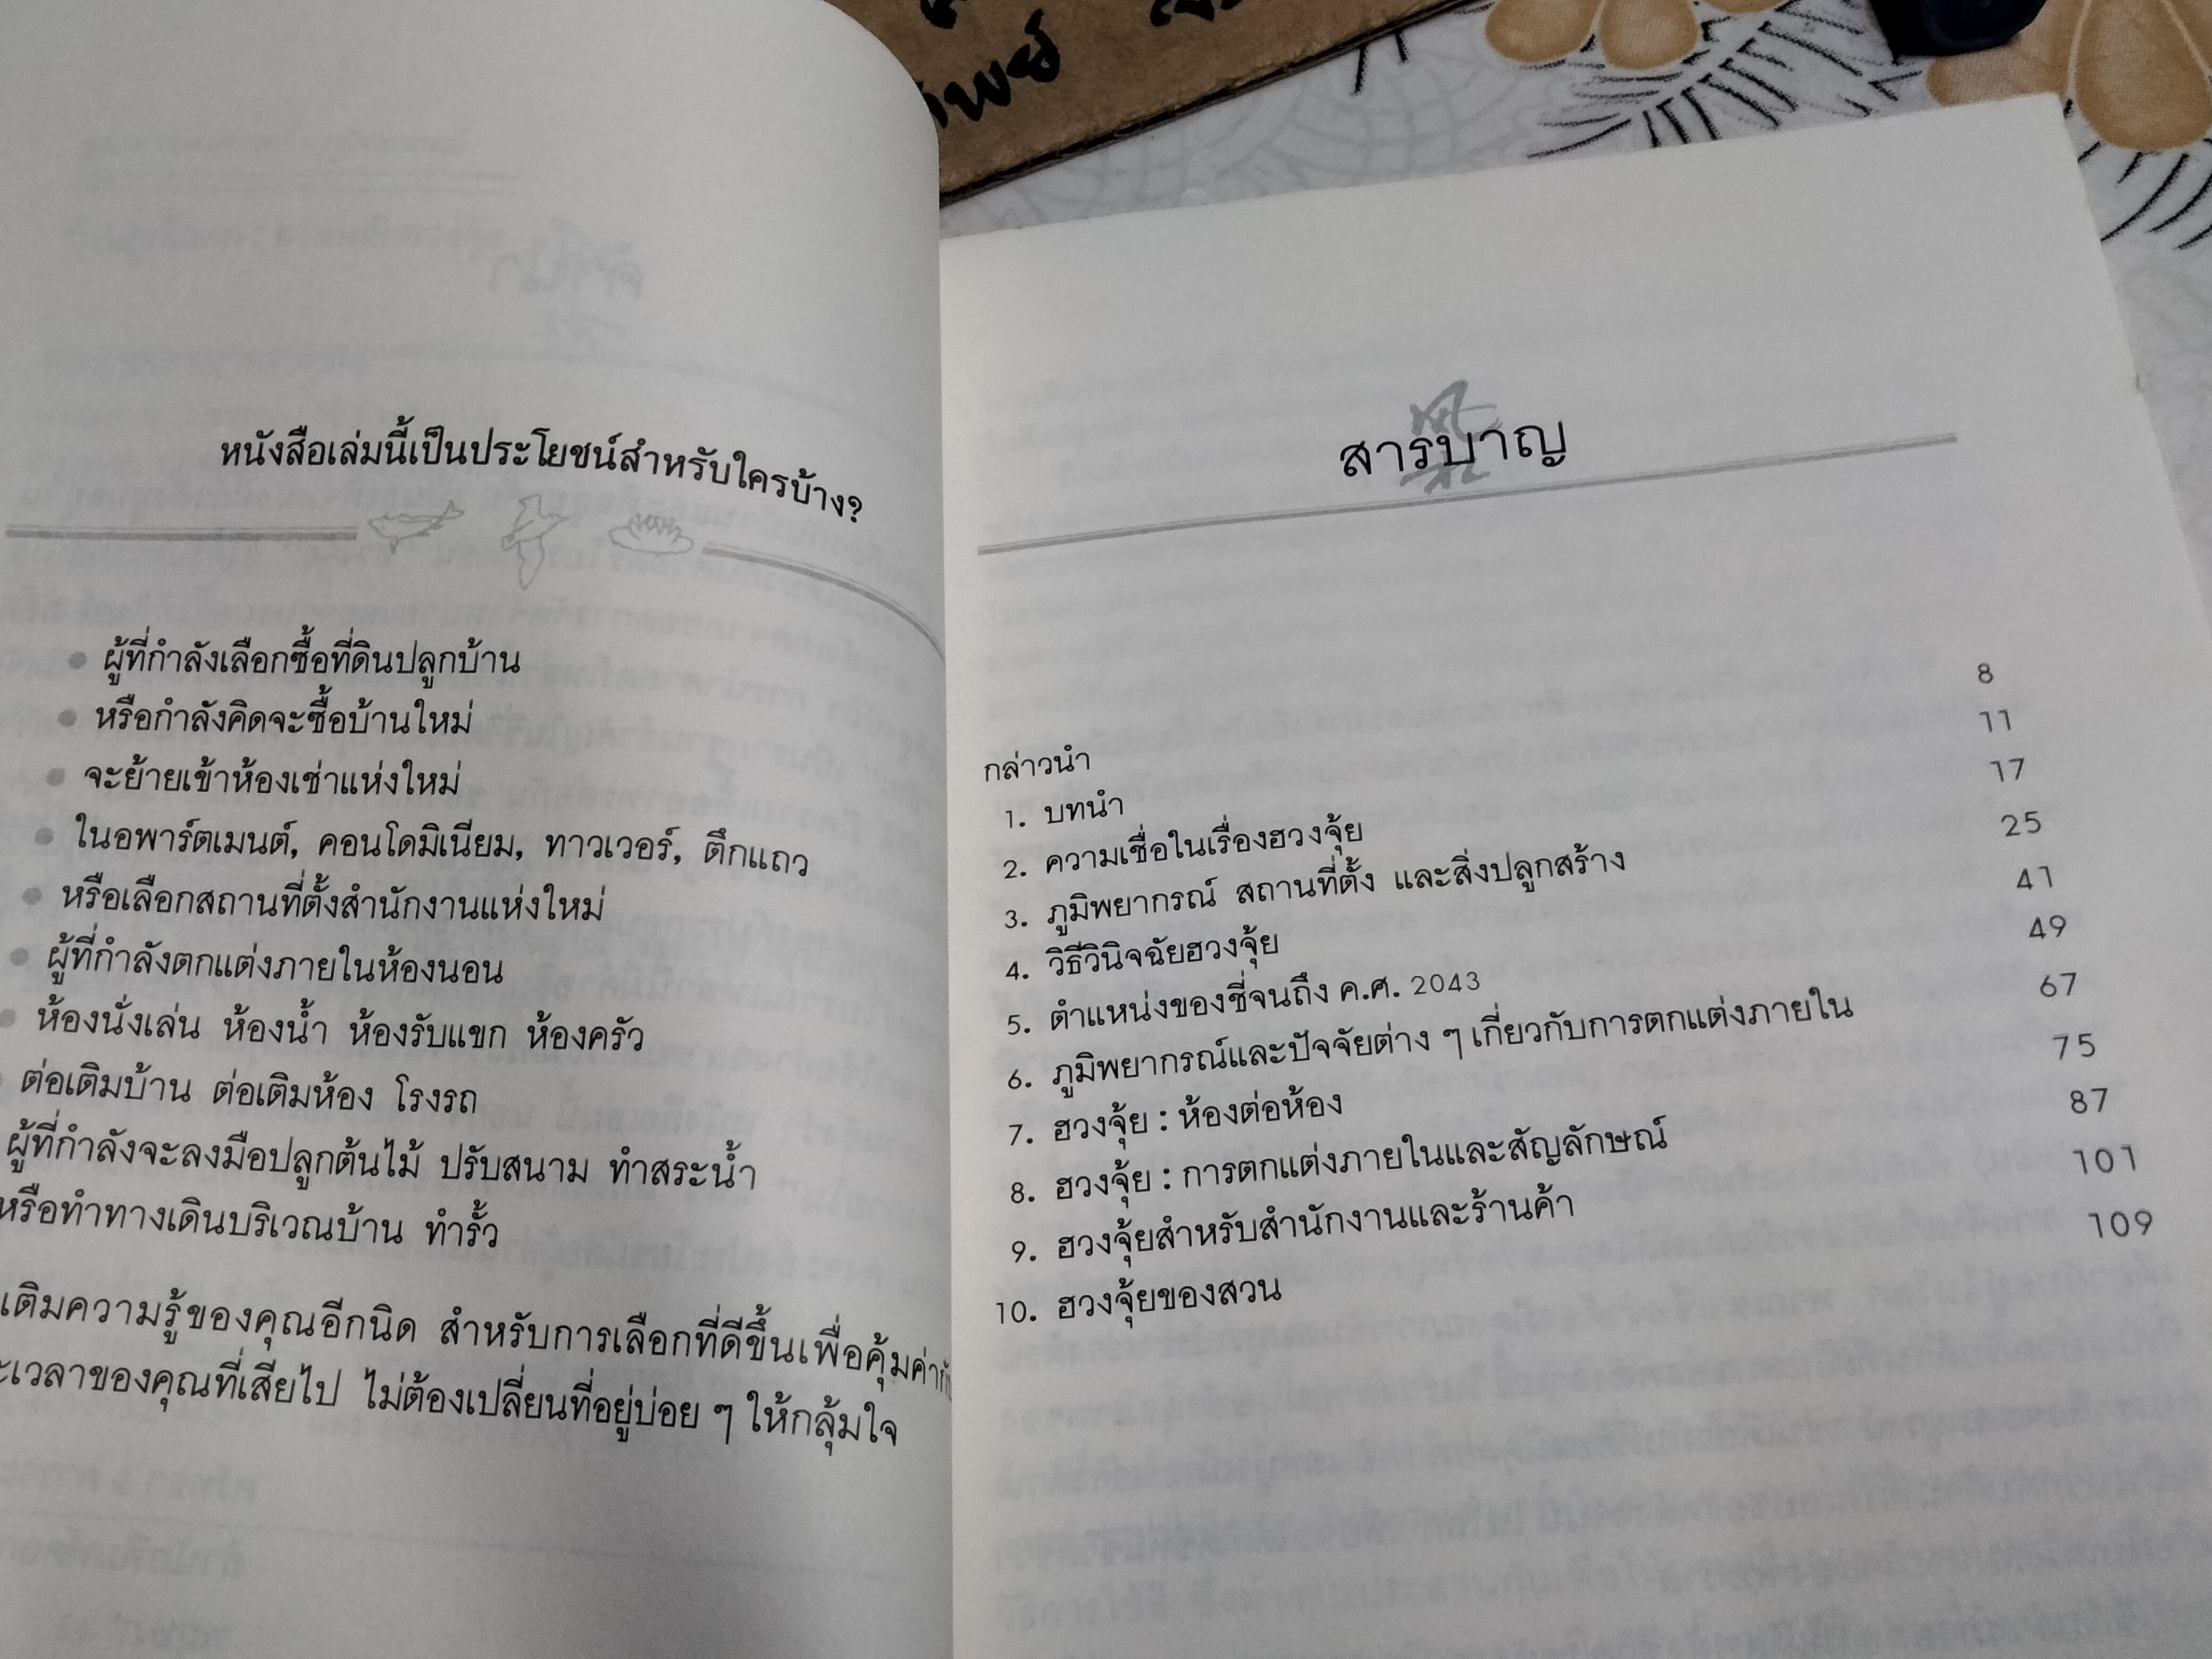 หนังสือเล่มนี้เป็นประโยชน์สำหรับใครบ้าง?
ผู้ที่กำลังเลือกซื้อที่ดินปลูกบ้าน
หรือกำลังคิดจะซื้อบ้านใหม่
จะย้ายเข้าห้องเช่าแห่งใหม่
ในอพาร์ตเมนต์, คอนโดมิเนียม, ทาวเวอร์, ตึกแถว
หรือเลือกสถานที่ตั้งสำนักงานแห่งใหม่
ผู้ที่กำลังตกแต่งภายในห้องนอน
ห้องนั่งเล่น ห้องน้ำ ห้องรับแขก ห้องครัว
ต่อเติมบ้าน ต่อเติมห้อง โรงรถ
ผู้ที่กำลังจะลงมือปลูกต้นไม้ ปรับสนาม ทำสระน้ำ
หรือทำทางเดินบริเวณบ้าน ทำรั้ว
เติมความรู้ของคุณอีกนิด สำหรับการเลือกที่ดีขึ้นเพื่อคุ้มค่า
เวลาของคุณที่เสียไป ไม่ต้องเปลี่ยนที่อยู่บ่อย ๆ ให้กลุ้มใจ
สารบาญ
กล่าวนำ 8
1. บทนำ 11
2. ความเชื่อในเรื่องฮวงจุ้ย 17
3. ภูมิพยากรณ์ สถานที่ตั้ง และสิ่งปลูกสร้าง 25
4. วิธีวินิจฉัยฮวงจุ้ย 41
5. ตำแหน่งของชี่จนถึง ค.ศ. 2043 49
6. ภูมิพยากรณ์และปัจจัยต่าง ๆ เกี่ยวกับการตกแต่งภายใน 67
7. ฮวงจุ้ย : ห้องต่อห้อง 75
8. ฮวงจุ้ย : การตกแต่งภายในและสัญลักษณ์ 87
9. ฮวงจุ้ยสำหรับสำนักงานและร้านค้า 101
10. ฮวงจุ้ยของสวน 109